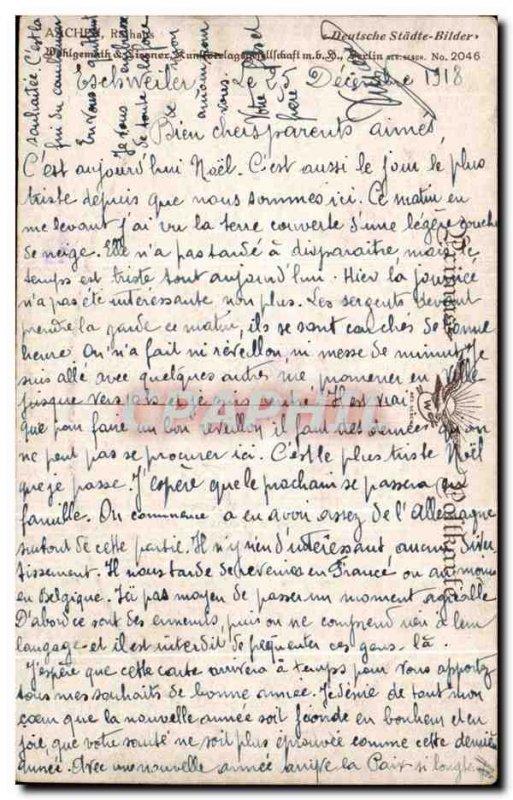 AACHEN, Rathaus
»Deutsche Städte-Bilder«
Wohlgemuth & Lissner, Kunstverlagsgesellschaft m.b.H., Berlin No. 2046
Eschweiler, Le 25 Décembre 1918
Bien chers parents aimés,
C'est aujourd'hui Noël. C'est aussi le jour le plus
triste depuis que nous sommes ici. Ce matin en
me levant j'ai vu la terre couverte d'une légère couche
de neige. Elle n'a pas tardé à disparaître, mais le
temps est triste tout aujourd'hui. Hier la journée
n'a pas été intéressante non plus. Les sergents devant
prendre la garde ce matin, ils se sont couchés de bonne
heure. On n'a fait ni réveillon ni messe de minuit. Je
suis allé avec quelques autres me promener en ville
jusque vers puis je suis rentré. Il est vrai
que pour faire un bon réveillon il faut des denrées qu'on
ne peut pas se procurer ici. C'est le plus triste Noël
que je passe. J'espère que le prochain se passera en
famille. On commence à en avoir assez de l'Allemagne
surtout de cette partie. Il n'y rien d'intéressant, aucun diver
tissement. Il nous tarde de revenir en France ou au moins
en Belgique. Ici pas moyen de passer un moment agréable
D'abord ce sont des ennemis, puis on ne comprend rien à leur
langage et il est interdit de fréquenter ces gens-là.
J'espère que cette carte arrivera à temps pour vous apporter
tous mes souhaits de bonne année. Je désire de tout mon
cœur que la nouvelle année soit féconde en bonheur et en
joie que votre santé ne soit plus éprouvée comme cette dernière
année. Avec une nouvelle année arrive la Paix si longte
souhaitée. C'est la
fin du cauchemar
En vous quittant
Je vous embrasse
de toute la force
de mon
amour pour
vous.
Votre
CPAPHIL